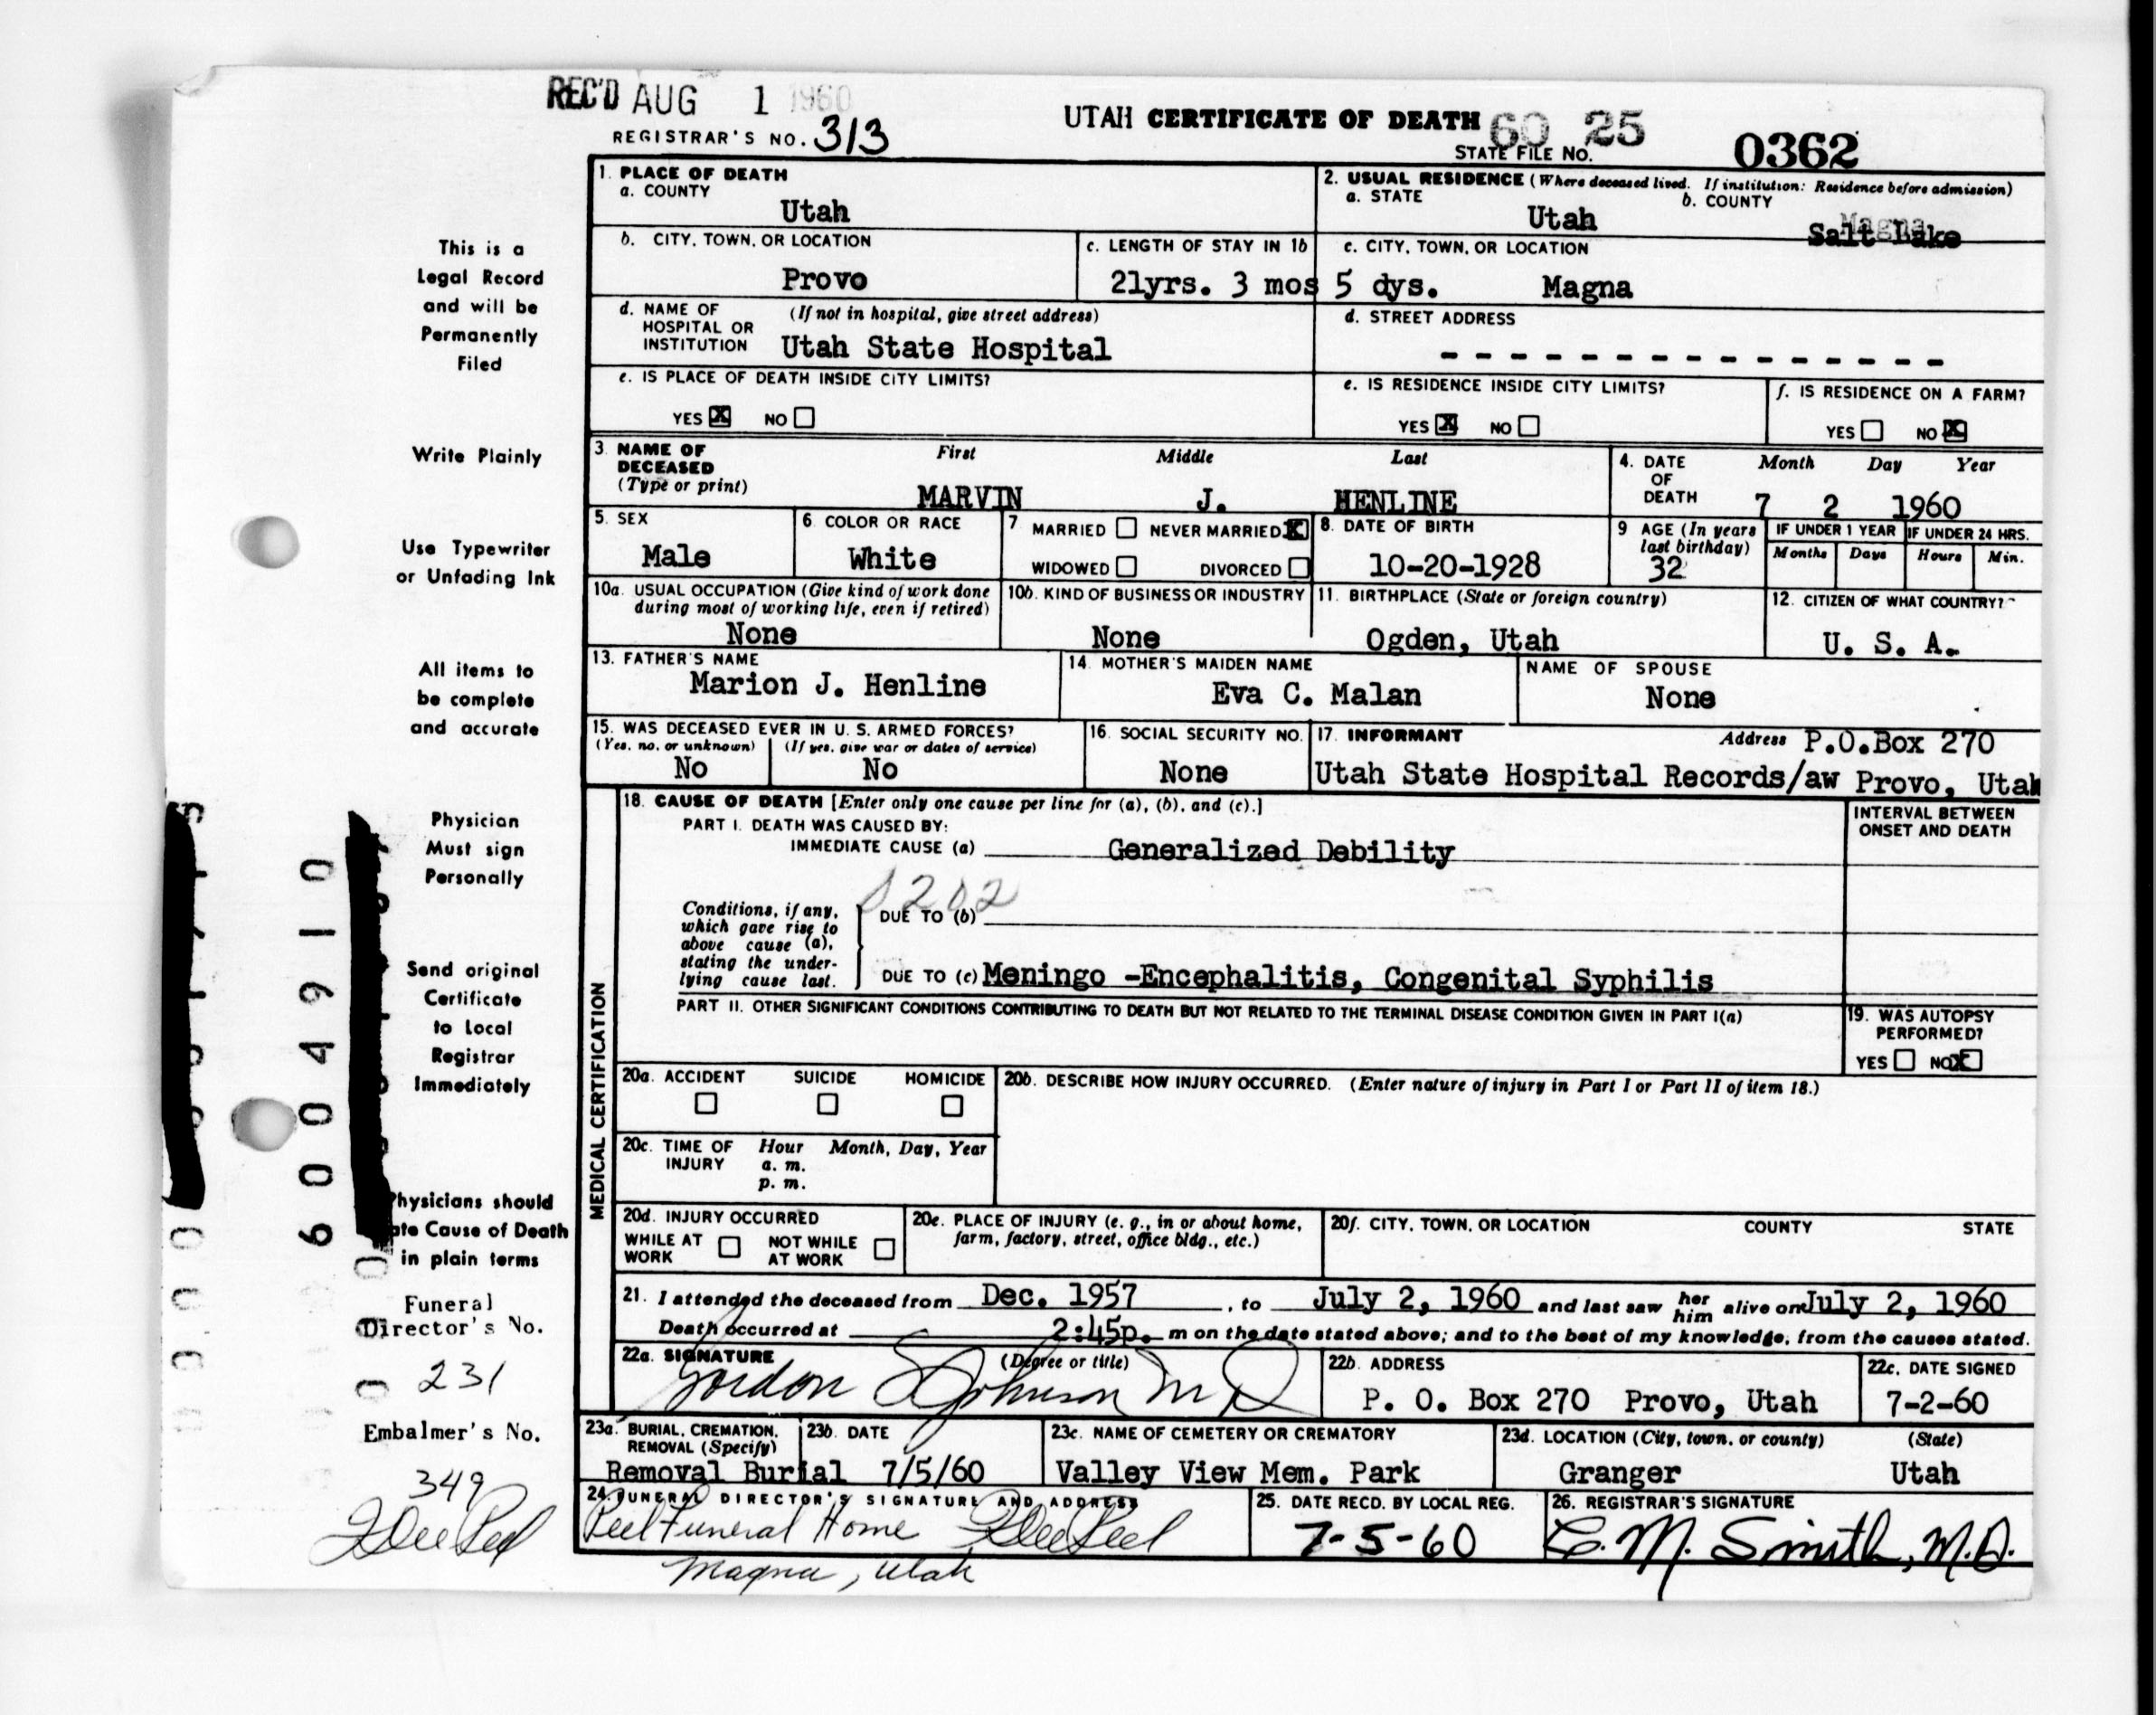 REC'D AUG 1 1960
REGISTRAR'S NO. 313
UTAH CERTIFICATE OF DEATH 60 25
STATE FILE NO. 0362
1. PLACE OF DEATH
a. COUNTY
Utah
2. USUAL RESIDENCE (Where deceased lived. If institution: Residence before admission)
a. STATE
Utah
b. COUNTY
Magna
Salt Lake
b. CITY, TOWN, OR LOCATION
Provo
c. LENGTH OF STAY IN 1b
21yrs. 3 mos 5 dys.
c. CITY, TOWN, OR LOCATION
Magna
d. NAME OF HOSPITAL OR INSTITUTION
(If not in hospital, give street address)
Utah State Hospital
d. STREET ADDRESS
- - - - - - - - - - - - - - -
e. IS PLACE OF DEATH INSIDE CITY LIMITS?
YES X NO
e. IS RESIDENCE INSIDE CITY LIMITS?
YES X NO
f. IS RESIDENCE ON A FARM?
YES NO X
3. NAME OF DECEASED
(Type or print)
First Middle Last
MARVIN J. HENLINE
4. DATE OF DEATH
Month Day Year
7 2 1960
5. SEX
Male
6. COLOR OR RACE
White
7 MARRIED NEVER MARRIED X
WIDOWED DIVORCED
8. DATE OF BIRTH
10-20-1928
9 AGE (In years last birthday)
32
IF UNDER 1 YEAR
Months Days
IF UNDER 24 HRS.
Hours Min.
10a. USUAL OCCUPATION (Give kind of work done
during most of working life, even if retired)
None
10b. KIND OF BUSINESS OR INDUSTRY
None
11. BIRTHPLACE (State or foreign country)
Ogden, Utah
12. CITIZEN OF WHAT COUNTRY?
U. S. A.
13. FATHER'S NAME
Marion J. Henline
14. MOTHER'S MAIDEN NAME
Eva C. Malan
NAME OF SPOUSE
None
15. WAS DECEASED EVER IN U. S. ARMED FORCES?
(Yes, no, or unknown) (If yes, give war or dates of service)
No No
16. SOCIAL SECURITY NO.
None
17. INFORMANT Address P.O.Box 270
Utah State Hospital Records/aw Provo, Utah
MEDICAL CERTIFICATION
18. CAUSE OF DEATH [Enter only one cause per line for (a), (b), and (c).]
PART I. DEATH WAS CAUSED BY:
IMMEDIATE CAUSE (a) Generalized Debility
INTERVAL BETWEEN
ONSET AND DEATH
Conditions, if any,
which gave rise to
above cause (a),
stating the under-
lying cause last.
DUE TO (b)
DUE TO (c) Meningo -Encephalitis, Congenital Syphilis
PART II. OTHER SIGNIFICANT CONDITIONS CONTRIBUTING TO DEATH BUT NOT RELATED TO THE TERMINAL DISEASE CONDITION GIVEN IN PART I(a)
19. WAS AUTOPSY
PERFORMED?
YES NO X
20a. ACCIDENT SUICIDE HOMICIDE
20b. DESCRIBE HOW INJURY OCCURRED. (Enter nature of injury in Part I or Part II of item 18.)
20c. TIME OF INJURY
Hour Month, Day, Year
a. m.
p. m.
20d. INJURY OCCURRED
WHILE AT WORK NOT WHILE AT WORK
20e. PLACE OF INJURY (e. g., in or about home,
farm, factory, street, office bldg., etc.)
20f. CITY, TOWN, OR LOCATION COUNTY STATE
21. I attended the deceased from Dec. 1957, to July 2, 1960 and last saw her him alive on July 2, 1960
Death occurred at 2:45p. m on the date stated above; and to the best of my knowledge, from the causes stated.
22a. SIGNATURE (Degree or title)
Gordon S Johnson M D
22b. ADDRESS
P. O. Box 270 Provo, Utah
22c. DATE SIGNED
7-2-60
23a. BURIAL, CREMATION,
REMOVAL (Specify)
Removal Burial
23b. DATE
7/5/60
23c. NAME OF CEMETERY OR CREMATORY
Valley View Mem. Park
23d. LOCATION (City, town, or county) (State)
Granger Utah
24. FUNERAL DIRECTOR'S SIGNATURE AND ADDRESS
Peel Funeral Home
Magna, Utah
25. DATE RECD. BY LOCAL REG.
7-5-60
26. REGISTRAR'S SIGNATURE
C. M. Smith, M.D.
This is a
Legal Record
and will be
Permanently
Filed
Write Plainly
Use Typewriter
or Unfading Ink
All items to
be complete
and accurate
Physician
Must sign
Personally
Send original
Certificate
to Local
Registrar
Immediately
Physicians should
ate Cause of Death
in plain terms
Funeral
Director's No.
231
Embalmer's No.
349
6004910